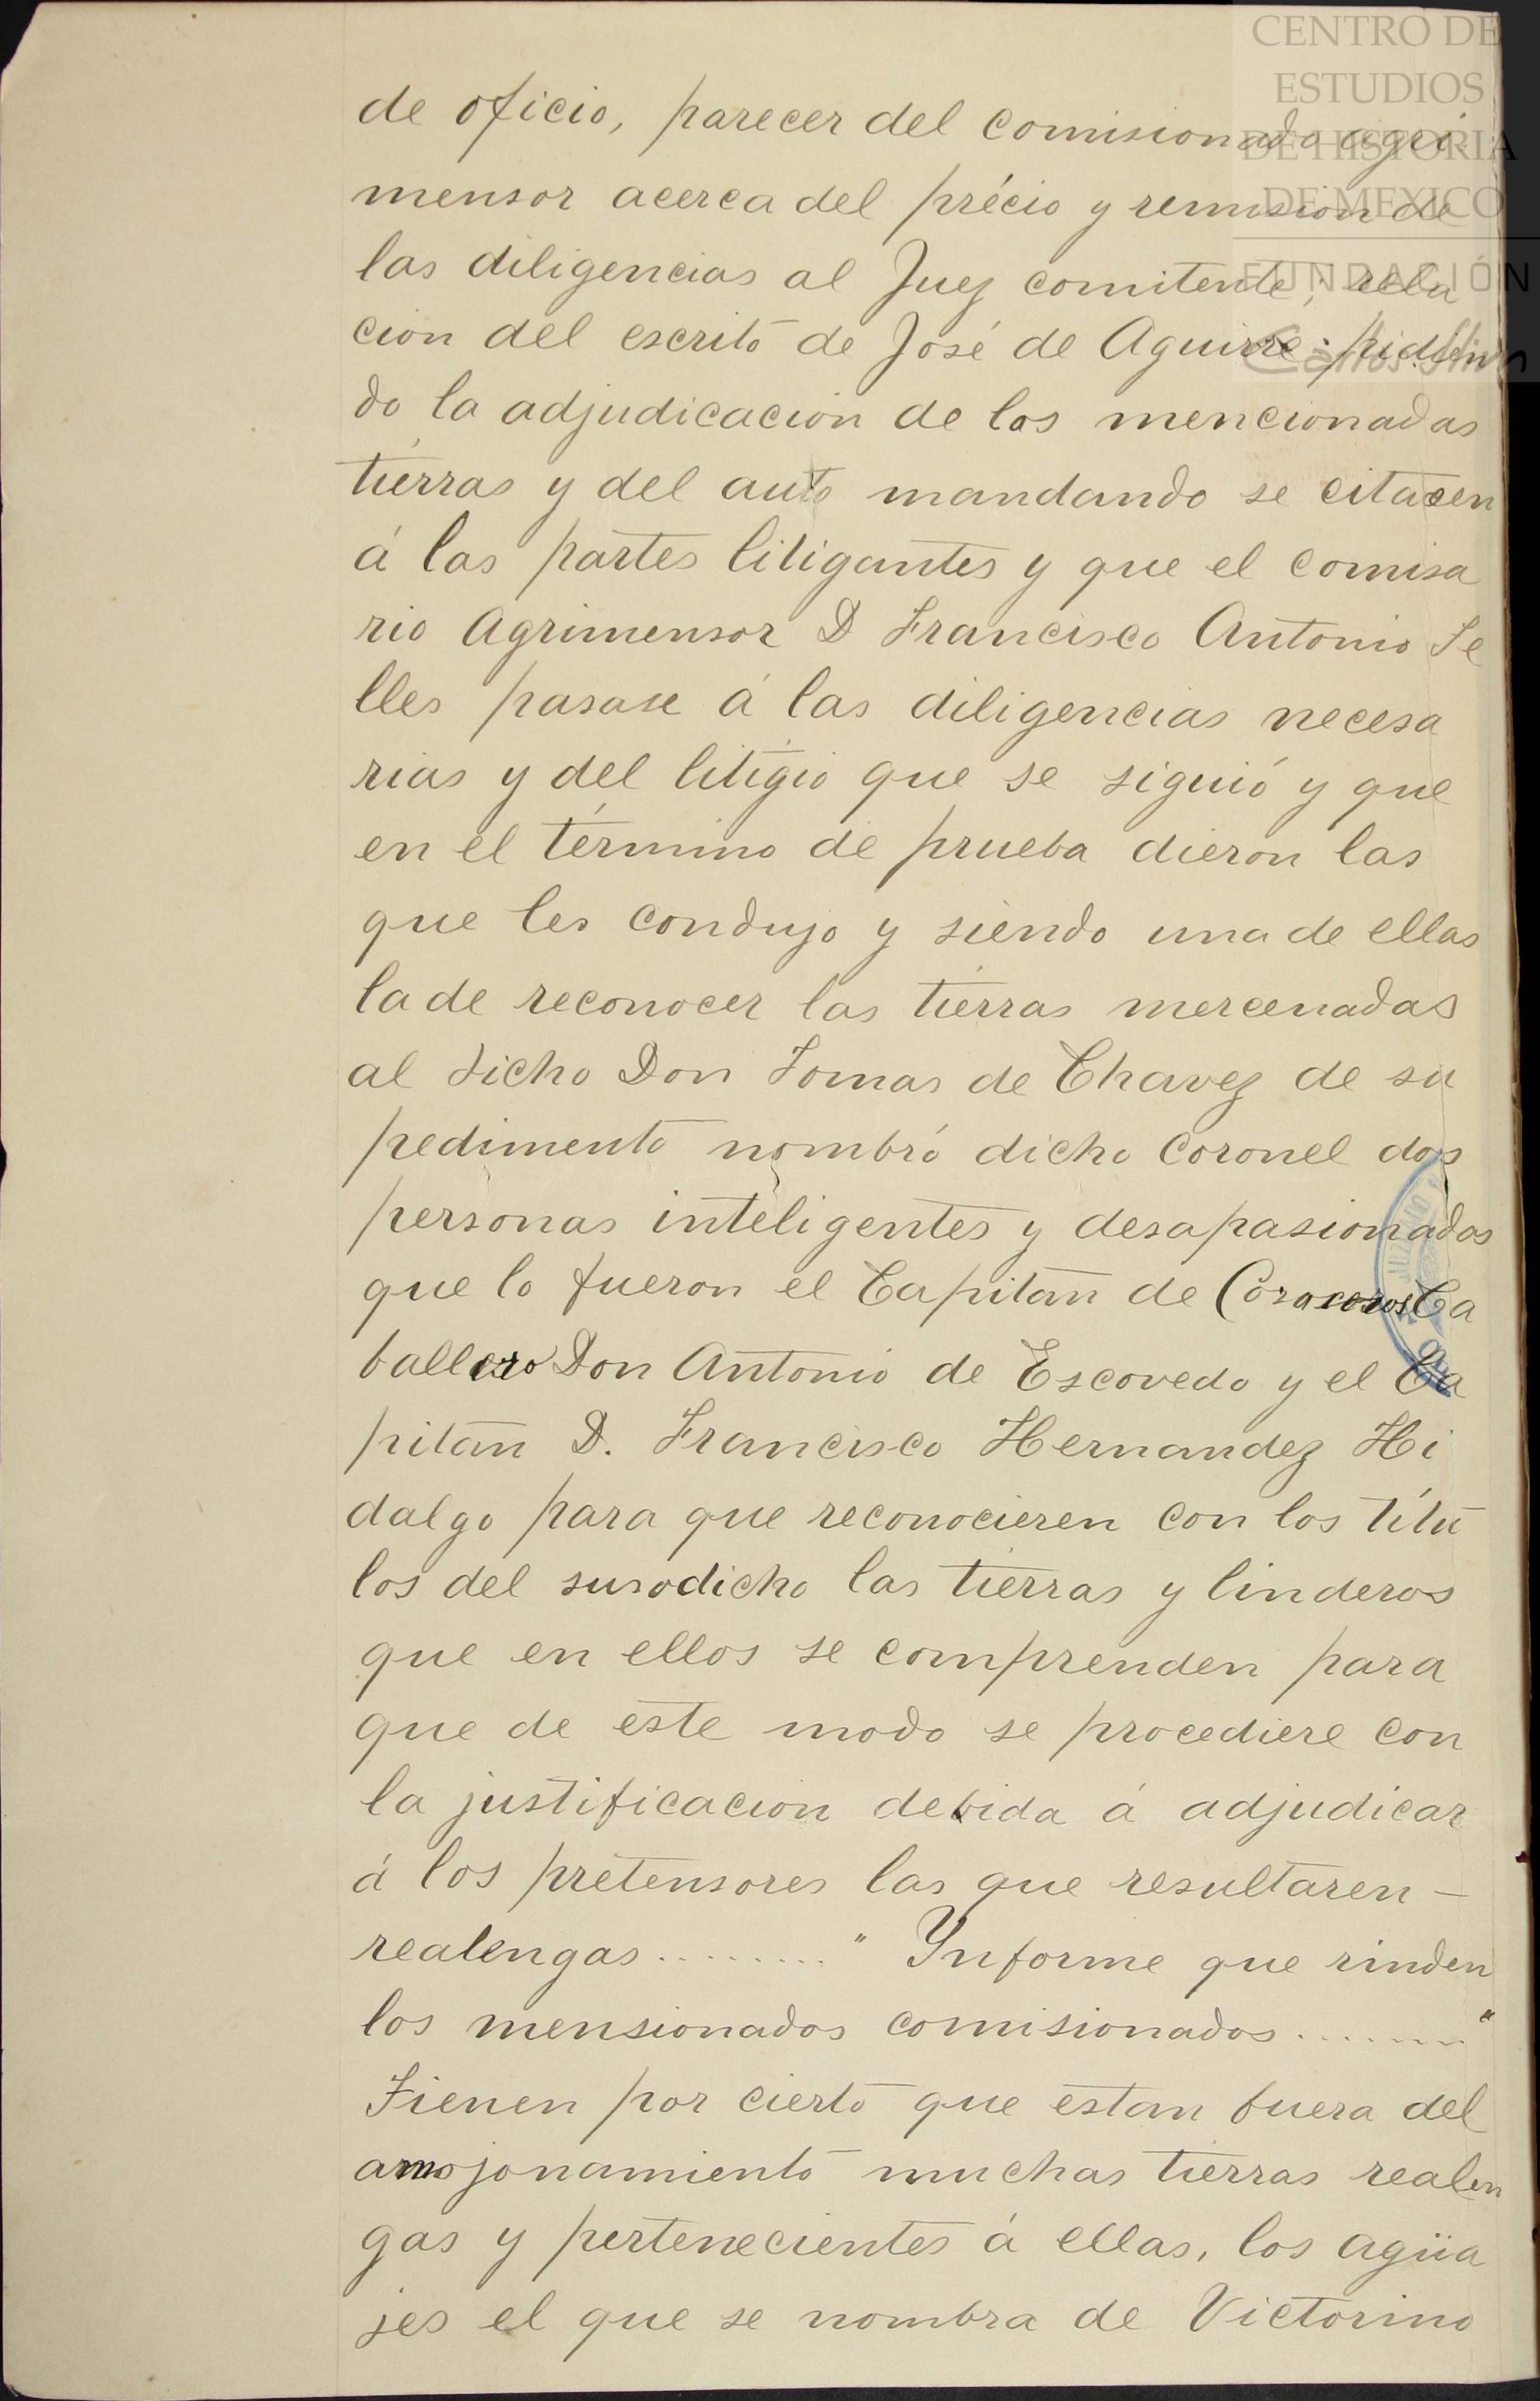 CENTRO DE
ESTUDIOS
DE HISTORIA
DE MEXICO
FUNDACIÓN
Carlos Slim
de oficio, parecer del comisionado agri-
mensor acerca del précio y remision de
las diligencias al Juez comitente; rela
cion del escrito de José de Aguirre pidien
do la adjudicacion de las mencionadas
tierras y del auto mandando se citasen
á las partes litigantes y que el comisa
rio Agrimensor D Francisco Antonio Te
lles pasase á las diligencias necesa
rias y del litigio que se siguió y que
en el término de prueba dieron las
que les condujo y siendo una de ellas
la de reconocer las tierras mercenadas
al dicho Don Tomas de Chavez de su
pedimento nombró dicho Coronel dos
personas inteligentes y desapasionadas
que lo fueron el Capitan de Coraceros Ca
ballero Don Antonio de Escovedo y el Ca
pitan D. Francisco Hernandez Hi
dalgo para que reconocieren con los títu
los del susodicho las tierras y linderos
que en ellos se comprenden para
que de este modo se procediere con
la justificacion debida á adjudicar
á los pretensores las que resultaren -
realengas ........ " Ynforme que rinden
los mensionados comisionados ........ "
Tienen por cierto que estan fuera del
amojonamiento muchas tierras realen
gas y pertenecientes á ellas, los agüa
jes el que se nombra de Victorino